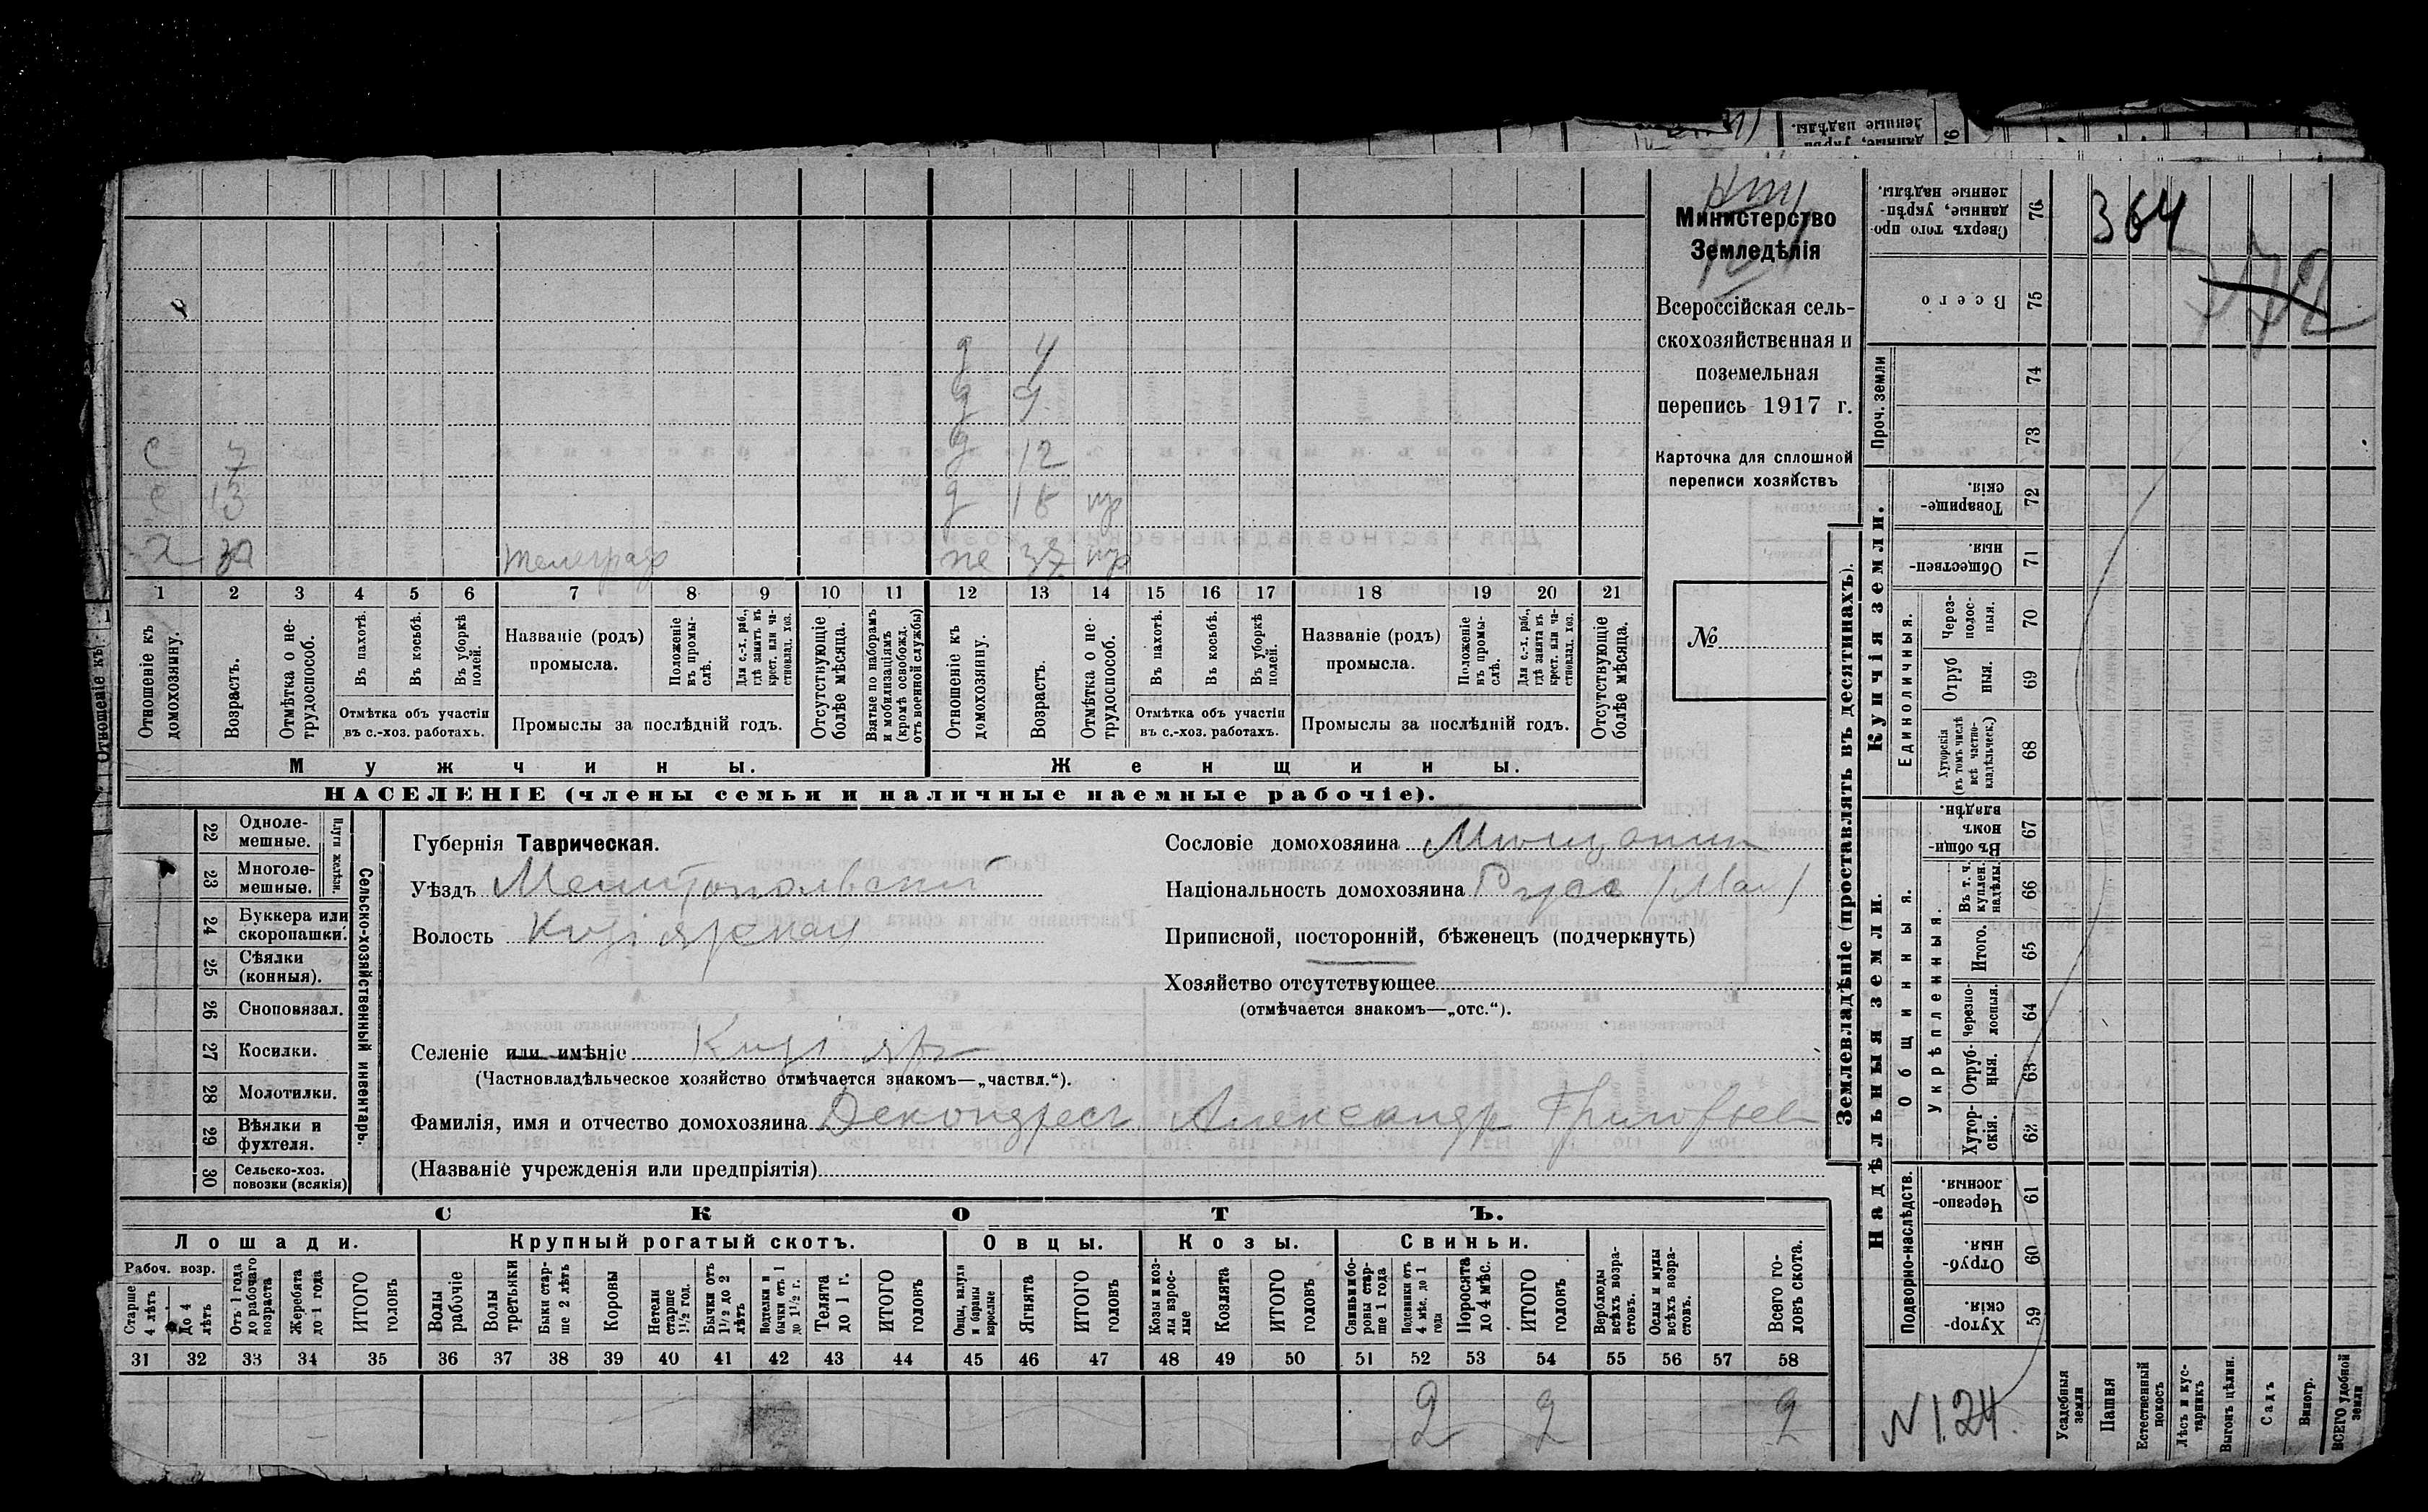 364
Министерство
Земледѣлія
Всероссійская сель-
скохозяйственная и
поземельная
перепись 1917 г.
Карточка для сплошной
переписи хозяйствъ
№
д 4
д 9
с 7 д 12
с 13 д 15 нр
х телеграф 37 нр
1 2 3 4 5 6 7 8 9 10 11 12 13 14 15 16 17 18 19 20 21
Отношеніе къ домохозяину.
Возрастъ.
Отмѣтка о не-трудоспособ.
Въ пахотѣ.
Въ косьбѣ.
Въ уборкѣ полей.
Отмѣтка объ участіи въ с.-хоз. работахъ.
Названіе (родъ) промысла.
Положеніе въ промы-слѣ.
Для с.-х. раб., гдѣ занятъ въ крест. или ча-стновлад. хоз.
Промыслы за послѣдній годъ.
Отсутствующіе болѣе мѣсяца.
Взятые по наборамъ и мобилизаціямъ (кромѣ освобожд. отъ военной службы)
Отношеніе къ домохозяину.
Возрастъ.
Отмѣтка о не-трудоспособ.
Въ пахотѣ.
Въ косьбѣ.
Въ уборкѣ полей.
Отмѣтка объ участіи въ с.-хоз. работахъ.
Названіе (родъ) промысла.
Положеніе въ промы-слѣ.
Для с.-х. раб., гдѣ занята въ крест. или ча-стновлад. хоз.
Промыслы за послѣдній годъ.
Отсутствующіе болѣе мѣсяца.
Мужчины.
Женщины.
НАСЕЛЕНІЕ (члены семьи и наличные наемные рабочіе).
Сельско-хозяйственный инвентарь.
Плуги желѣзн.
22 Одноле-мешные.
23 Многоле-мешные.
24 Буккера или скоропашки.
25 Сѣялки (конныя).
26 Сноповязал.
27 Косилки.
28 Молотилки.
29 Вѣялки и фухтеля.
30 Сельско-хоз. повозки (всякія)
Губернія Таврическая.
Уѣздъ Мелитопольскій
Волость
Селеніе или имѣніе
(Частновладѣльческое хозяйство отмѣчается знакомъ—„частвл.“).
Фамилія, имя и отчество домохозяина Александр Григорьев
(Названіе учрежденія или предпріятія)
Сословіе домохозяина Мѣщанин
Національность домохозяина Русс (Мал)
Приписной, посторонній, бѣженецъ (подчеркнуть)
Хозяйство отсутствующее
(отмѣчается знакомъ—„отс.“).
СКОТЪ.
Лошади. Крупный рогатый скотъ. Овцы. Козы. Свиньи.
Рабоч. возр.
Старше 4 лѣтъ
До 4 лѣтъ
Отъ 1 года до рабочаго возраста
Жеребята до 1 года
ИТОГО головъ
Волы рабочіе
Волы третьяки
Быки стар-ше 2 лѣтъ
Коровы
Нетели старше 1½ год.
Бычки отъ 1½ до 2 лѣтъ
Подтелки и бычки отъ 1 до 1½ г.
Телята до 1 г.
ИТОГО головъ
Овцы, валухи и бараны взрослые
Ягнята
ИТОГО головъ
Козы и коз-лы взрос-лые
Козлята
ИТОГО головъ
Свиньи и бо-ровы стар-ше 1 года
Подсвинки отъ 4 мѣс. до 1 года
Поросята до 4 мѣс.
ИТОГО головъ
Верблюды всѣхъ возра-стовъ.
Ослы и мулы всѣхъ возра-стовъ.
Всего го-ловъ скота.
31 32 33 34 35 36 37 38 39 40 41 42 43 44 45 46 47 48 49 50 51 52 53 54 55 56 57 58
2 2 2
Землевладѣніе (проставлять въ десятинахъ).
Сверхъ того про-данные, укрѣп-ленные надѣлы. 76
Всего 75
Проч. земли 74
73
Купчія земли.
Товарище-скія. 72
Обществен-ныя. 71
Единоличныя.
Через-полос-ныя. 70
Отруб ныя. 69
Хуторскія (въ томъ числѣ всѣ частно-владѣльческ.) 68
Надѣльныя земли.
Въ общин-номъ владѣн. 67
Общинныя.
Укрѣпленныя.
Въ т. ч. куплен. надѣлы. 66
Итого. 65
Черезпо-лосныя. 64
Отруб-ныя. 63
Хутор-скія. 62
Подворно-наслѣдств.
Черезпо-лосныя. 61
Отруб-ныя. 60
Хутор-скія. 59
N 124.
Усадебныя земли
Пашня
Естественный покосъ
Лѣсъ и кус-тарникъ
Выгонъ цѣлин.
Садъ
Виногр.
ВСЕГО удобной земли